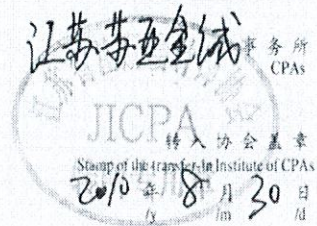 江苏苏亚金诚 事务所
CPAs
JICPA
转入协会盖章
Stamp of the transfer-in Institute of CPAs
2010 年 8 月 30 日
/y /m /d